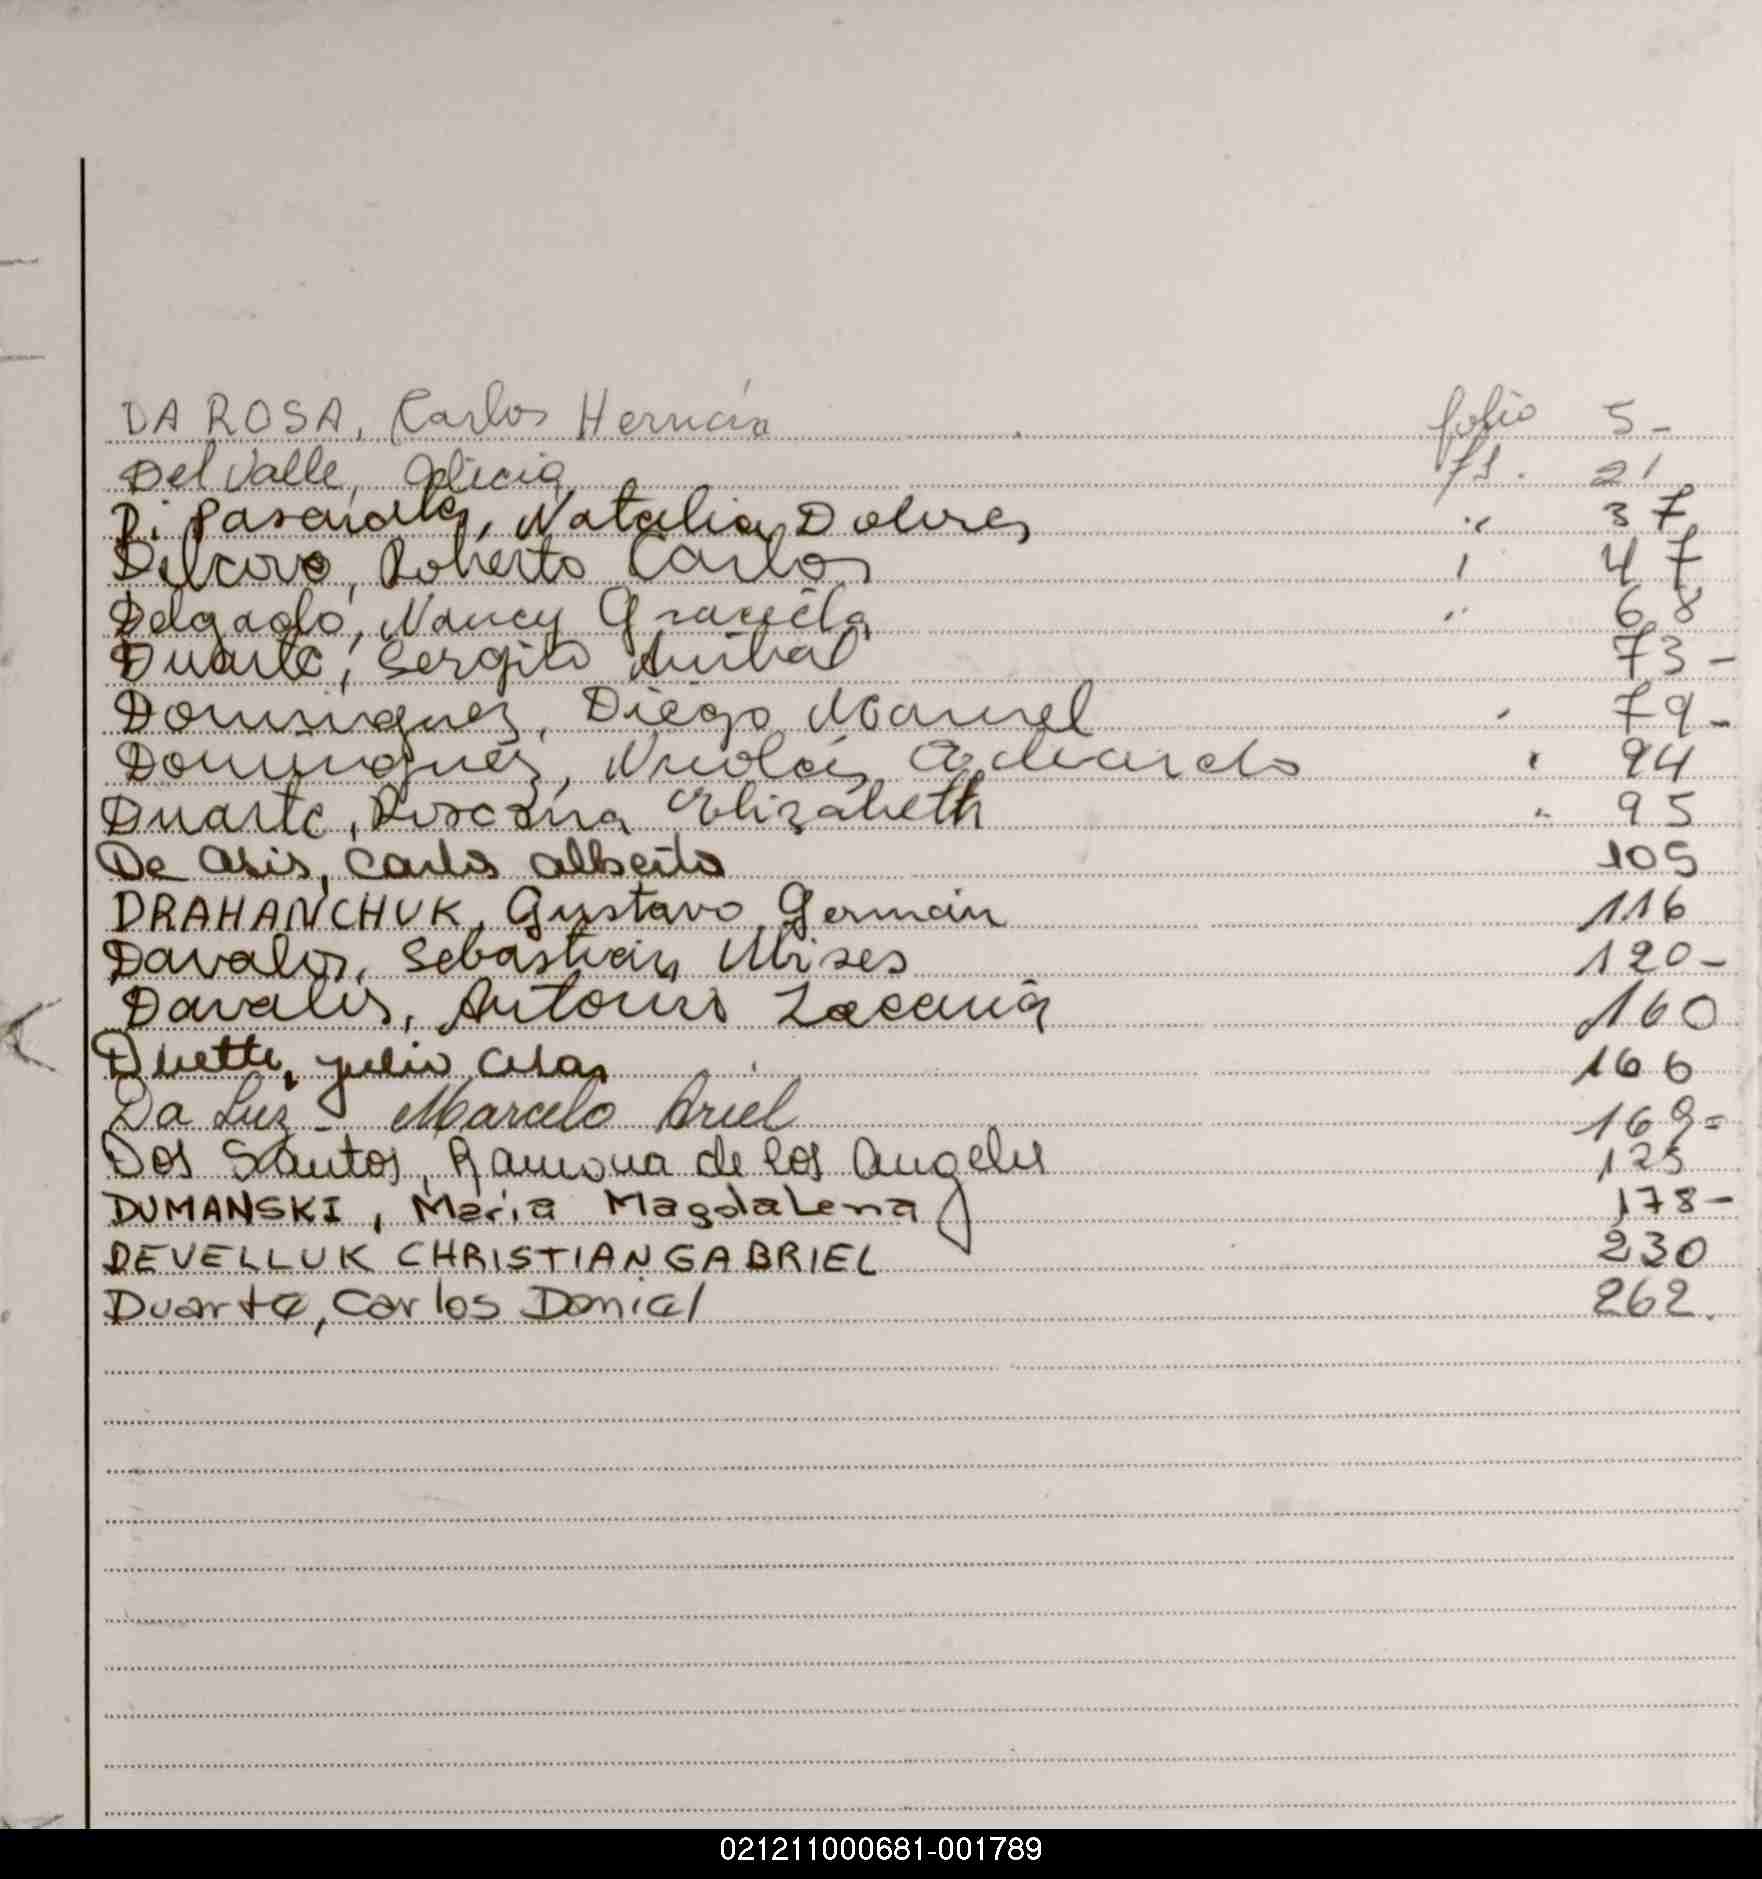 DA ROSA, Carlos Hernán folio 5-
Del Valle, Alicia fs. 21
Di Natalia Dolores " 37
Roberto Carlos 47
Delgado, Nancy Graciela " 68
Duarte, Sergio Anibal 73-
Dominguez, Diego Manuel " 79-
Dominguez, Nicolás Eduardo " 94
Duarte, Rosana Elizabeth " 95
De Asis, Carlos Alberto 105
DRAHANCHUK, Gustavo Germán 116
Davalos, Sebastián Ulises 120-
Davalos, Antonio 160
Julio Cesar 166
Da Luz - Marcelo Ariel 169=
Dos Santos, Ramona de los Angeles
DUMANSKI, Maria Magdalena 178-
DEVELLUK CHRISTIAN GABRIEL 230
Duarte, Carlos Daniel 262.
021211000681-001789